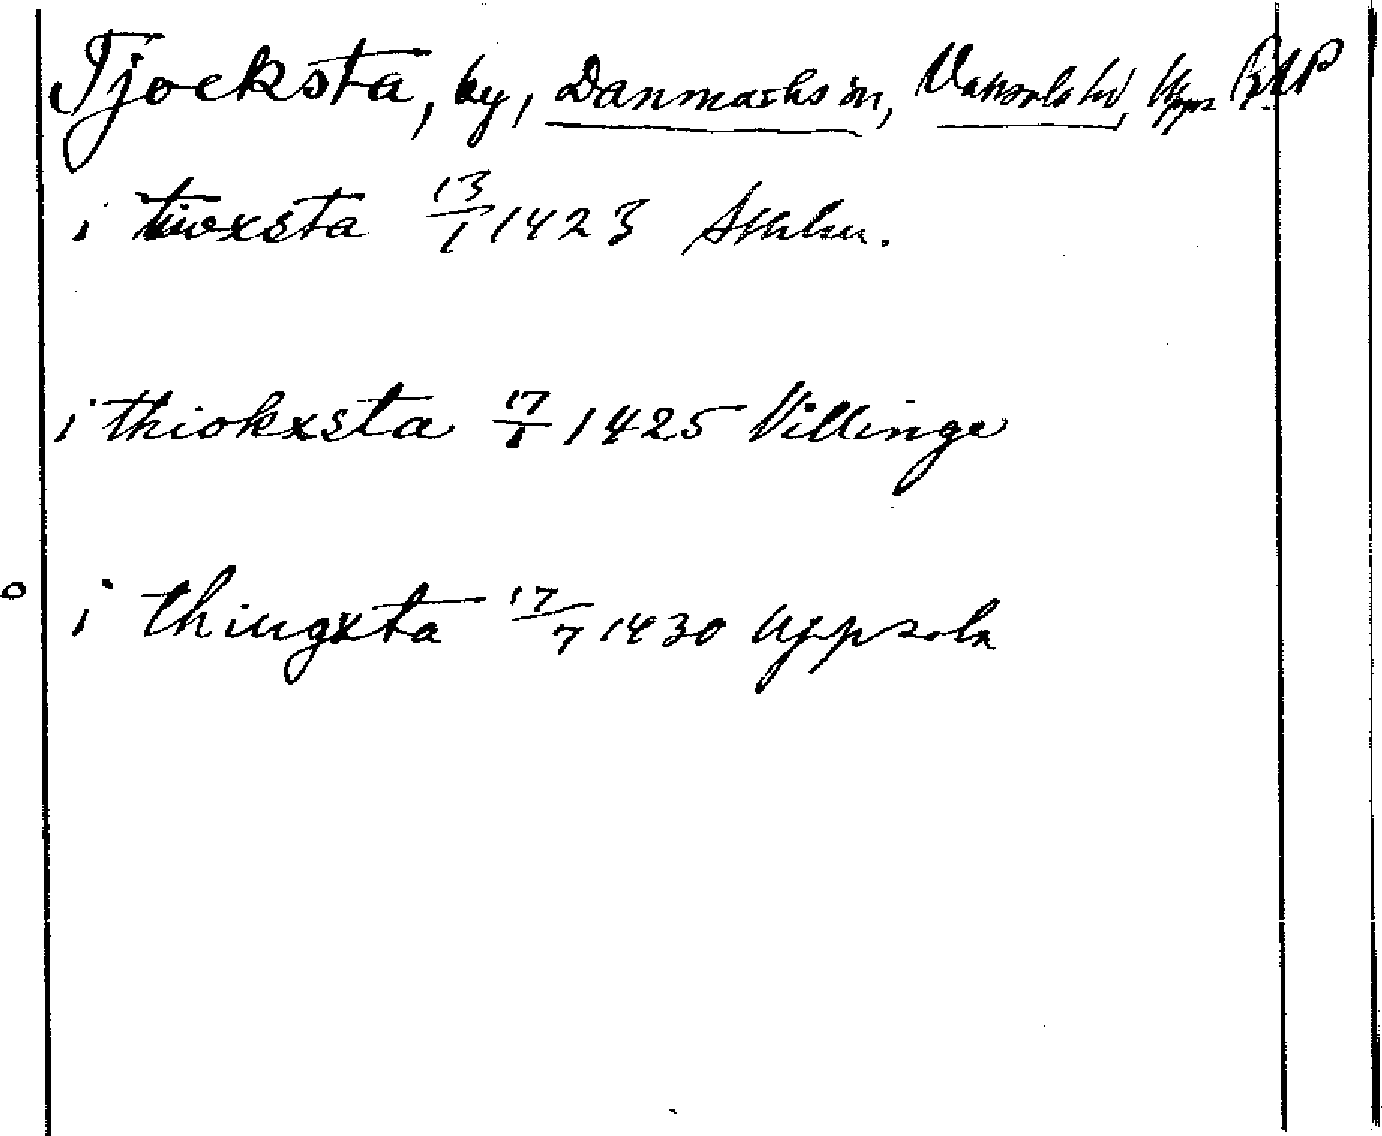 Tjocksta, by, Danmarks sn, Vaksala hd, Upps RAP
i tiioxsta 13/1 1423 Sthlm.
i thiokxsta 17/1 1425 Villinge
o i thiugxta 17/7 1430 Uppsala